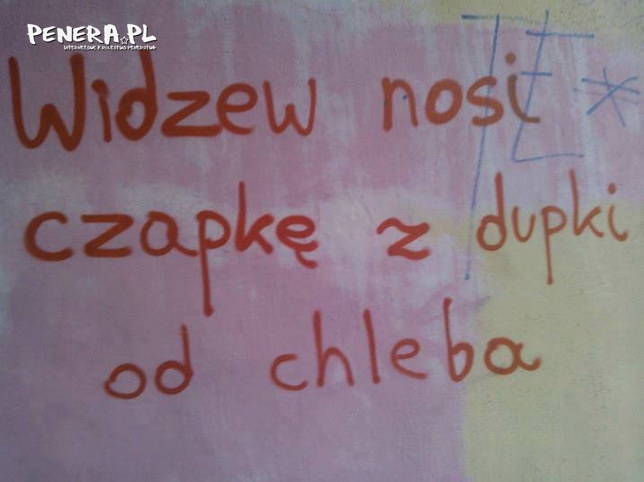 PENERA.PL
INTERNETOWE KRÓLESTWO PENERSTWA
Widzew nosi
czapkę z dupki
od chleba